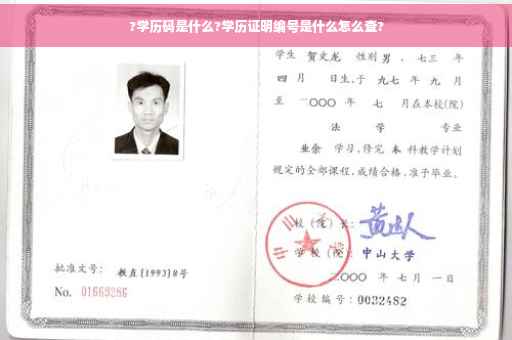 ?学历码是什么?学历证明编号是什么怎么查?
学生 贺文龙 性别 男 、七三 年
四 月 日生,于 九七 年 九 月
至 二〇〇〇 年 七 月在本校(院)
法 学 专业
业余 学习,修完 本 科教学计划
规定的全部课程,成绩合格,准予毕业。
校(院)长:
学校(院): 中山大学
二〇〇〇 年 七 月 一 日
学校编号:0032482
批准文号: 教直[1993]8号
No. 01669286